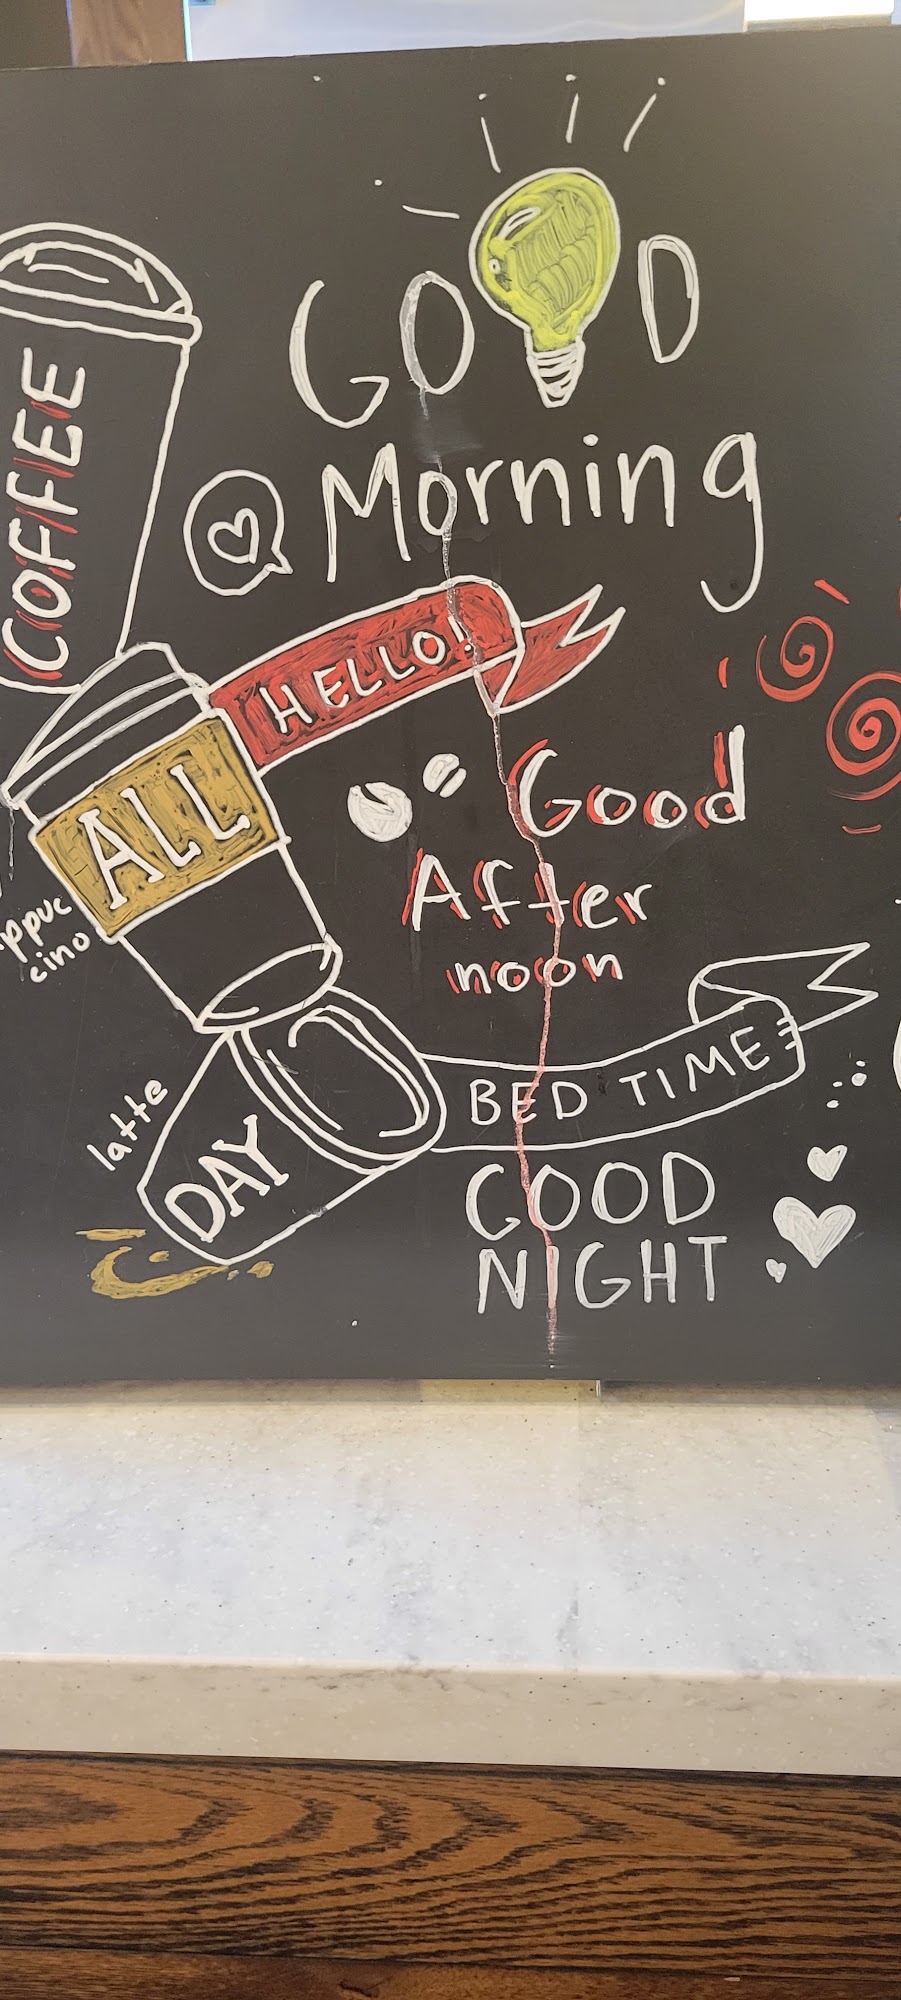 GOOD
Morning
COFFEE
HELLO!
ALL
Good
After
noon
ppuc
cino
BED TIME
latte
DAY
GOOD
NIGHT